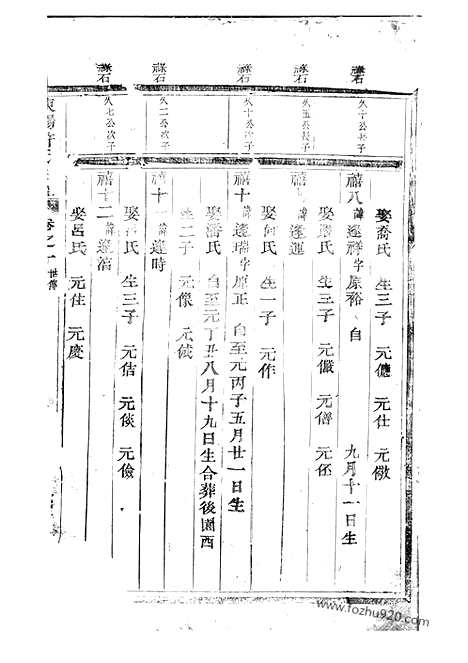 祿石
祿石
祿石
祿石
祿石
久十公長子
久五公長子
久十公次子
久二公次子
久七公次子
娶喬氏 生三子 元儢 元仕 元儆
禧八 諱逢祥字原裕 自 九月十一日生
娶 氏 生三子 元儼 元僧 元伾
禧 諱逢運
娶何氏 生一子 元作
禧十 諱逢瑞字原正 自至元丙子五月廿一日生
娶潘氏 自至元丁丑八月十九日生合葬後園西
生二子 元像 元
禧十 諱逢時
娶 氏 生三子 元佶 元倓 元儉
禧十二 諱逢
娶呂氏 元佳 元慶
卷之一 世傳
www.fozhu920.com